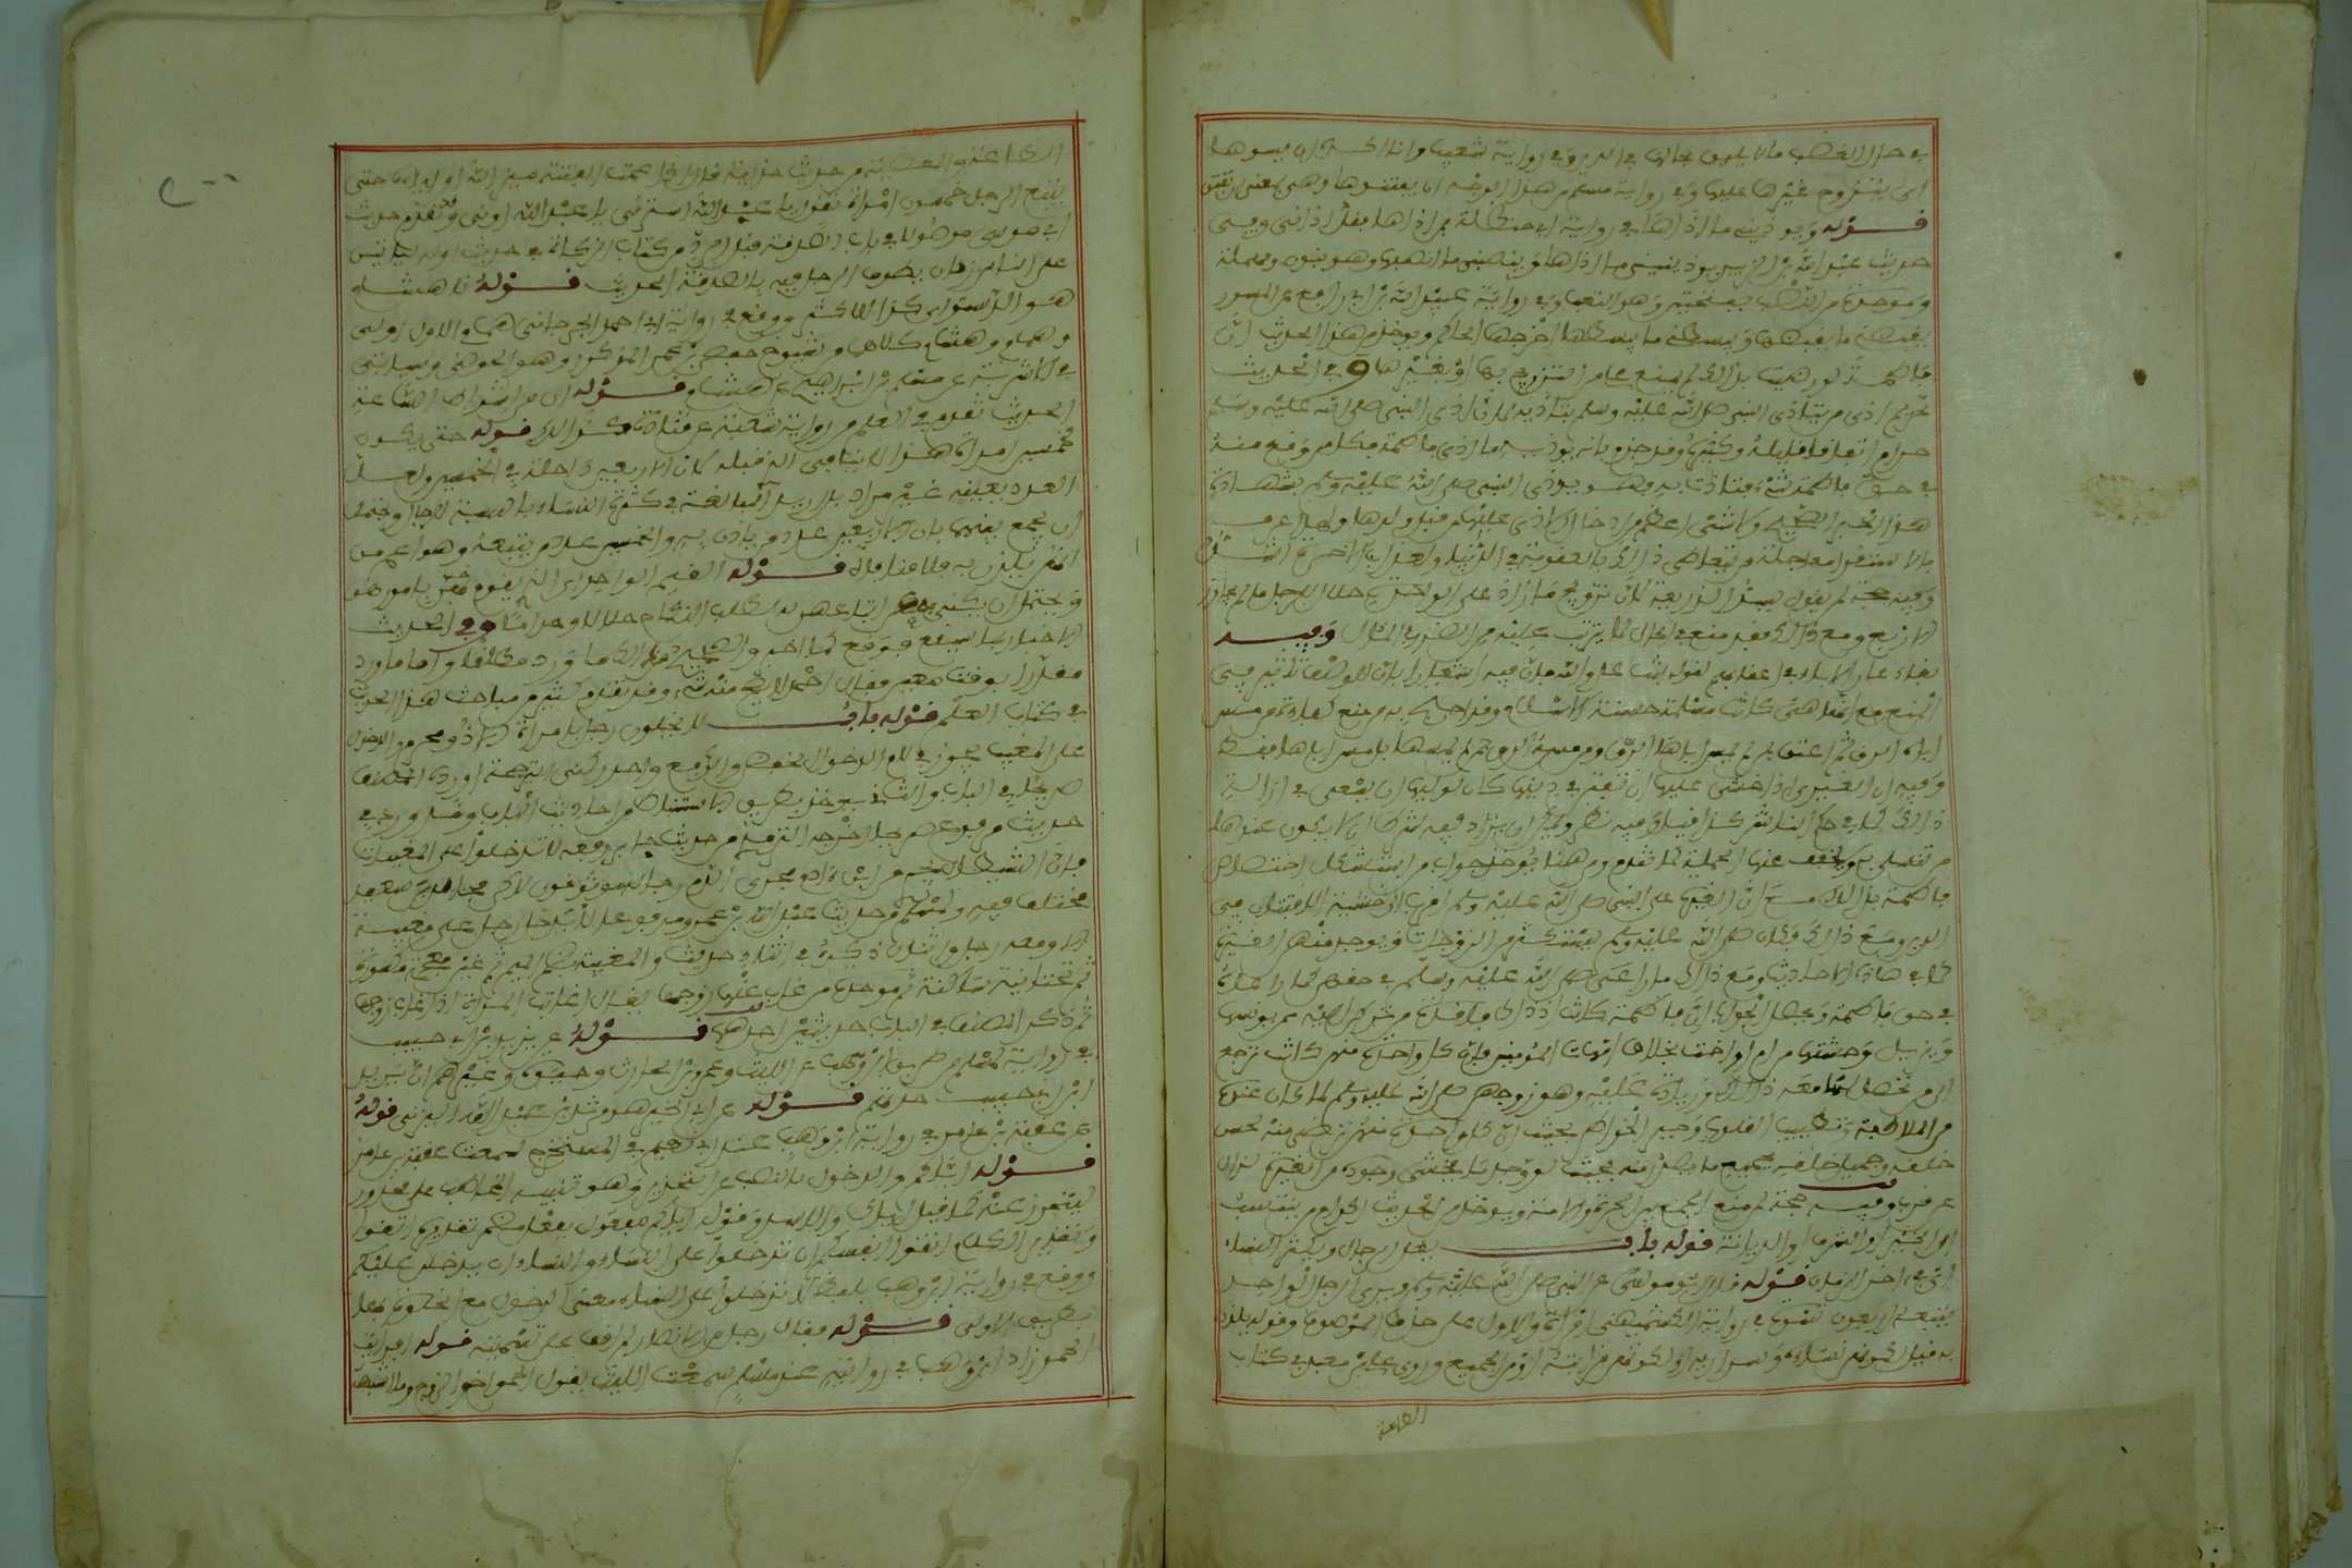 في حال الغضب ما لا يليق بحاله في الدين وفي رواية شعيب وانا اكره ان يسوءها
اي بتزوج غيرها عليها وفي رواية مسلم من هذا الوجه ان يفتنوها وهي بمعنى ان تفتن
قوله ويؤذيني ما آذاها في رواية ابي حنظلة فمن آذاها فقد آذاني وفي
حديث عبد الله بن الزبير يؤذيني ما آذاها وينصبني ما انصبها وهو بنون ومهملة
وموحدة من النصب بفتحتين وهو التعب وفي رواية عبيد الله بن ابي رافع عن المسور
يقبضني ما يقبضها ويبسطني ما يبسطها اخرجها الحاكم ويؤخذ من هذا الحديث ان
فاطمة لو رضيت بذالك لم يمنع علي من التزويج بها او بغيرها وفي الحديث
تحريم اذى من يتاذى النبي صلى الله عليه وسلم بتاذيه لان اذى النبي صلى الله عليه وسلم
حرام اتفاقا قليله وكثيره وقد جزم بانه يؤذيه ما اذى فاطمة فكل من وقع منه
في حق فاطمة شيء فتاذت به فهو يؤذي النبي صلى الله عليه وسلم بشهادة
هذا الخبر الصحيح ولا شيء اعظم في ادخال الاذى عليها من قتل ولدها ولهذا عرف
بالاستقراء معاجلة من تعاطى ذالك بالعقوبة في الدنيا ولعذاب الآخرة اشد
وفيه حجة لمن يقول بسد الذريعة لان تزويج ما زاد على الواحدة حلال للرجال ما لم يجاوز
الاربع ومع ذالك فقد منع في الحال لما يترتب عليه من الضرر في المآل وفيه
بقاء عار الاباء في اعقابهم لقوله بنت عدو الله فان فيه اشعارا بان للوصف تاثيرا في
المنع مع انها هي كانت مسلمة حسنة الاسلام وقد احتج به من منع كفاءة من مس
اباه الرق ثم اعتق بمن لم يمس اباها الرق ومن مسه الرق بمن لم يمسها بل مس اباها فقط
وفيه ان الغيرى اذا خشي عليها ان تفتن في دينها كان لوليها ان يسعى في ازالة
ذالك كما في حكم الناشز كذا قيل وفيه نظر ويمكن ان يزاد فيه شرط ان لا يكون عندها
من تتسلى به ويخفف عنها الحملة كما تقدم ومن هنا يؤخذ جواب من استشكل اختصاص
فاطمة بذالك مع ان الغيرة على النبي صلى الله عليه وسلم اقرب الى خشية الافتتان في
الدين ومع ذالك فكان صلى الله عليه وسلم يستكثر من الزوجات ويوجد منهن الغيرة
كما في هاذه الاحاديث ومع ذالك ما راعى صلى الله عليه وسلم في حقهن كما راعاه
في حق فاطمة ومحصل الجواب ان فاطمة كانت اذ ذاك فاقدة من تركن اليه ممن يؤنسها
ويزيل وحشتها من ام او اخت بخلاف امهات المؤمنين فان كل واحدة منهن كانت ترجع
الى من تحصل لها معه ذالك وزيادة عليه وهو زوجهن صلى الله عليه وسلم لما كان عنده
من الملاطفة وتطييب القلوب وجبر الخواطر بحيث ان كل واحدة منهن ترضى منه لحسن
خلقه وجميل خلقه بجميع ما يصدر منه بحيث لو وجد ما يخشى وجوده من الغيرة لزال
عن قرب وفيه حجة لمن منع الجمع بين الحرة والامة ويؤخذ من الحديث اكرام من ينتسب
الى الخير او الشرف او الديانة قوله باب يقل الرجال ويكثر النساء
اي في آخر الزمان قوله وقال ابو موسى عن النبي صلى الله عليه وسلم ويرى الرجل الواحد
يتبعه اربعون نسوة في رواية الكشميهني امراة والاول على حذف الموصوف وقوله يلذن
به قيل لكونهن نساءه وسراريه او لكونهن قراباته او من الجميع وروى علي بن معبد في كتاب
الطاعة
الطاعة والمعصية من حديث حذيفة قال اذا عمت الفتنة ميز الله اولياءه حتى
يتبع الرجل خمسون امراة تقول يا عبد الله استرني يا عبد الله اوني وقد تقدم حديث
ابي موسى موصولا في باب الصدقة قبل الرد من كتاب الزكاة في حديث اوله لياتين
على الناس زمان يطوف الرجل فيه بالصدقة الحديث قوله نا هشام
هو الدستوائي كذا للاكثر ووقع في رواية ابي احمد الجرجاني همام والاول اولى
وهمام وهشام كلاهما من شيوخ حفص بن عمر المذكور وهو الحوضي وسياتي
في الاشربة عن مسلم بن ابراهيم عن هشام قوله ان من اشراط الساعة
الحديث تقدم في العلم من رواية شعبة عن قتادة كذالك قوله حتى يكون
لخمسين امراة هذا لا ينافي الذي قبله لان الاربعين داخلة في الخمسين ولعل
العدد بعينه غير مراد بل اريد المبالغة في كثرة النساء بالنسبة للرجال ويحتمل
ان يجمع بينهما بان الاربعين عدد من يلذن به والخمسين عدد من يتبعه وهو اعم من
انهن يلذن به فلا منافاة قوله القيم الواحد اي الذي يقوم بامورهن
ويحتمل ان يكنى به عن اتباعهن له لطلب النكاح حلالا او حراما وفي الحديث
الاخبار بما سيقع فوقع كما اخبر والصحيح من ذالك ما ورد مطلقا واما ما ورد
مقدرا بوقت معين فقال احمد لا يصح منه شيء وقد تقدم كثير من مباحث هذا الحديث
في كتاب العلم قوله باب لا يخلون رجل بامراة الا ذو محرم والدخول
على المغيبة يجوز في لام الدخول الخفض والرفع واحد ركني الترجمة اورده المصنف
صريحا في الباب والثاني يؤخذ بطريق الاستنباط من احاديث الباب وقد ورد في
حديث مرفوع صريحا اخرجه الترمذي من حديث جابر رفعه لا تدخلوا على المغيبات
فان الشيطان يجري من ابن ءادم مجرى الدم رجاله موثوقون لاكن مجالد بن سعيد
مختلف فيه ولمسلم من حديث عبد الله بن عمرو مرفوعا لا يدخل رجل على مغيبة
الا ومعه رجل او اثنان ذكره في اثناء حديث والمغيبة بضم الميم ثم غين معجمة مكسورة
ثم تحتانية ساكنة ثم موحدة من غاب عنها زوجها يقال اغابت المراة اذا غاب زوجها
ثم ذكر المصنف في الباب حديثين احدهما قوله عن يزيد بن ابي حبيب
في رواية لمسلم من طريق ابن وهب عن الليث وعمرو بن الحارث وحيوة وغيرهم ان يزيد
ابن ابي حبيب حدثهم قوله عن ابي الخير هو مرثد بن عبد الله اليزني قوله
عن عقبة بن عامر في رواية ابن وهب عند ابي نعيم في المستخرج سمعت عقبة بن عامر
قوله اياكم والدخول بالنصب على التحذير وهو تنبيه المخاطب على محذور
ليتحرز عنه كما قيل اياك والاسد وقوله اياكم مفعول بفعل مضمر تقديره اتقوا
وتقدير الكلام اتقوا انفسكم ان تدخلوا على النساء والنساء ان يدخلن عليكم
ووقع في رواية ابن وهب بلفظ لا تدخلوا على النساء معنى الدخول مع الخلوة بها
بطريق الاولى قوله فقال رجل من الانصار لم اقف على تسميته قوله افرايت
الحمو زاد ابن وهب في روايته عند مسلم سمعت الليث يقول الحمو اخو الزوج وما اشبهه